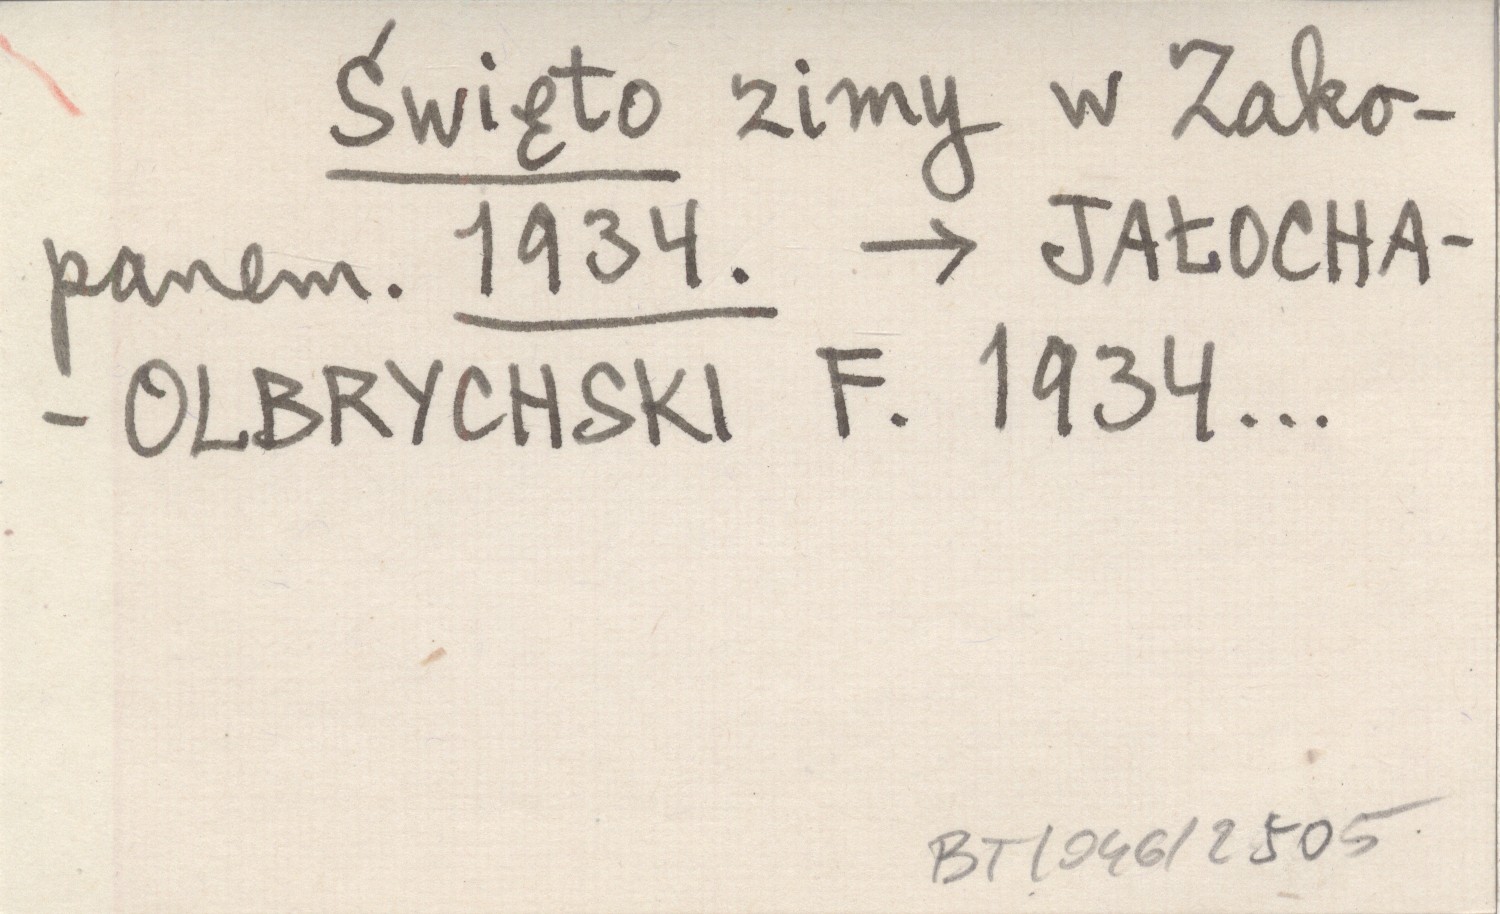 Święto zimy w Zako-
panem. 1934. → JAŁOCHA-
- OLBRYCHSKI F. 1934...
BT/046/2505